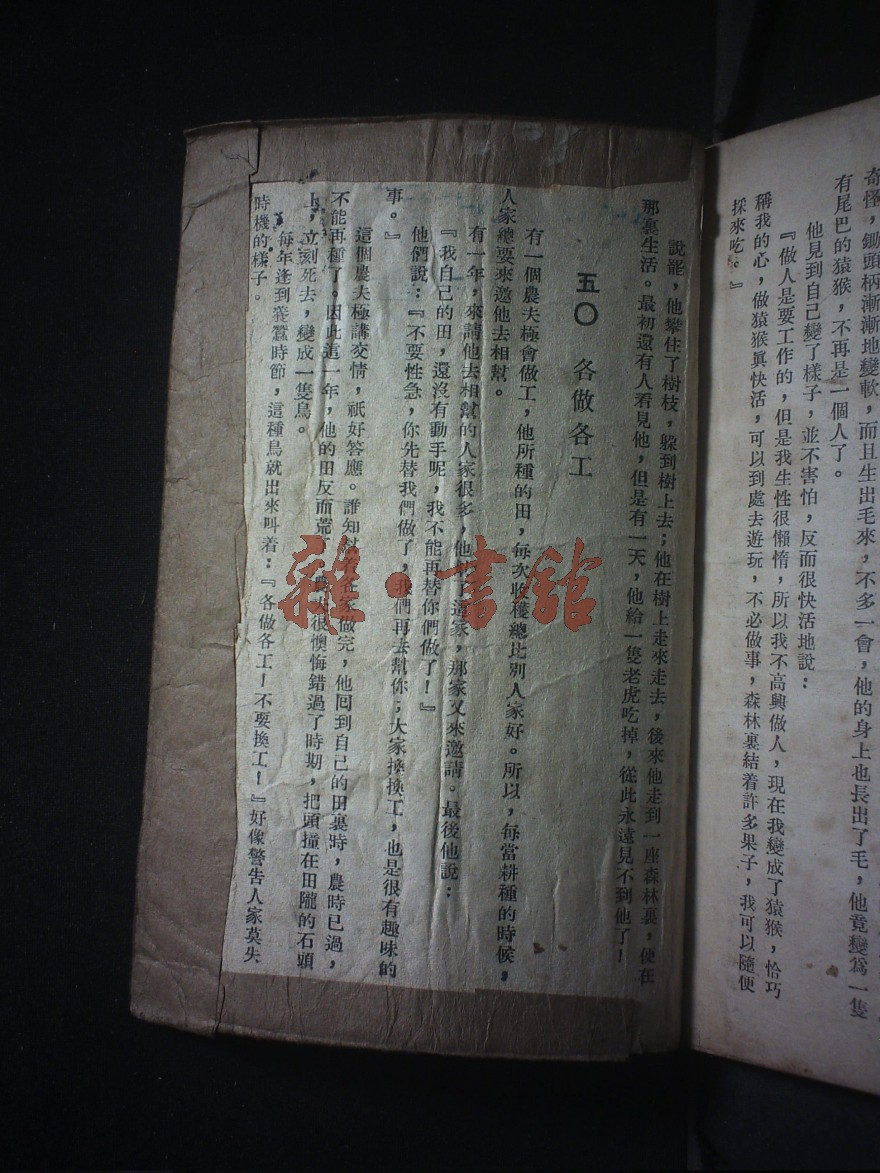 奇怪，鋤頭柄漸漸地變軟，而且生出毛來，不多一會，他的身上也長出了毛，他竟變爲一隻
有尾巴的猿猴，不再是一個人了。
他見到自己變了樣子，並不害怕，反而很快活地說：
『做人是要工作的，但是我生性很懶惰，所以我不高興做人，現在我變成了猿猴，恰巧
稱我的心，做猿猴眞快活，可以到處去遊玩，不必做事，森林裏結着許多果子，我可以隨便
採來吃。』
說罷，他攀住了樹枝，躲到樹上去；他在樹上走來走去，後來他走到一座森林裏，便在
那裏生活。最初還有人看見他，但是有一天，他給一隻老虎吃掉，從此永遠見不到他了！
五〇 各做各工
有一個農夫極會做工，他所種的田，每次收穫總比別人家好。所以，每當耕種的時候，
人家總要來邀他去相幫。
有一年，來請他去相幫的人家很多，他這家，那家又來邀請。最後他說：
『我自己的田，還沒有動手呢，我不能再替你們做了！』
他們說：『不要性急，你先替我們做了，我們再去幫你；大家換換工，也是很有趣味的
事。』
這個農夫極講交情，祇好答應。誰知家做完，他回到自己的田裏時，農時已過，
不能再種了。因此這一年，他的田反而荒很懊悔錯過了時期，把頭撞在田隴的石頭
上，立刻死去，變成一隻鳥。
每年逢到養蠶時節，這種鳥就出來叫着：『各做各工！不要換工！』好像警告人家莫失
時機的樣子。
雜·書館